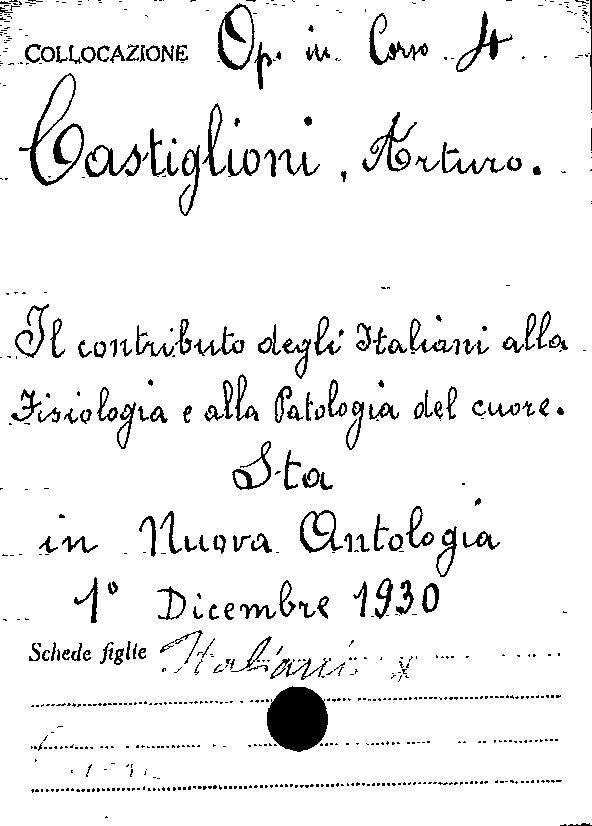 COLLOCAZIONE Op. in Corso 4
Castiglioni, Arturo.
Il contributo degli Italiani alla
Fisiologia e alla Patologia del cuore.
Sta
in Nuova Antologia
1° Dicembre 1930
Schede figlie Italiani x